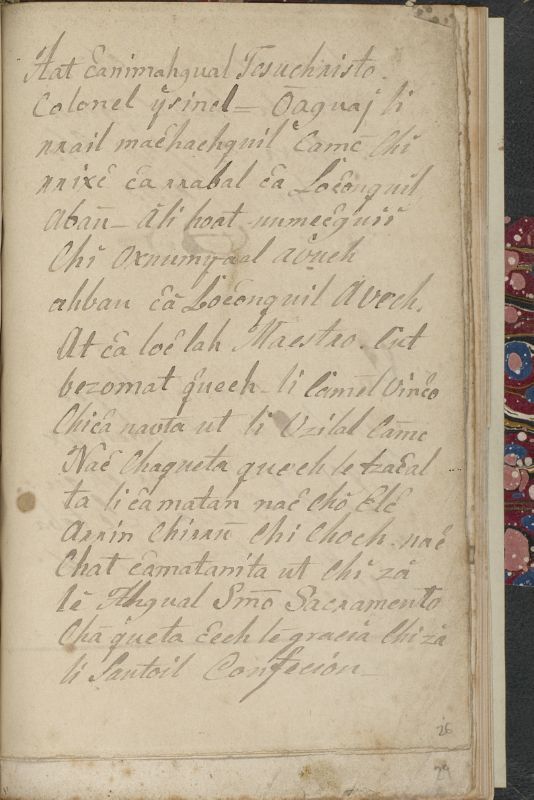 Aat Canimahqual Jesuchristo.
Colonel ysinel = Oaguaj li
rrail maćhachquil Camē Chi
rrixć ća rrabal ća Loćonquil
abañ — ali hoat numećquii
Chi Oxnumyaal avuch
ahbau ćā Loćonquil Avech.
At ća loć lah Maestro. Cut
bezomat queech — li Camēl Vinćo
Chića navta ut li Vzilal Camc
Nać Chaqueta queech le tzaćal
ta li ćamatan nać chō Elć
Arrin Chirrū Chi Choch. nać
Chat ćamatanita ut Chi zā
lē Ahgual Smō Sacramento
Chā queta ćech lē gracia Chi zā
li Santoil Confecion —
26
29